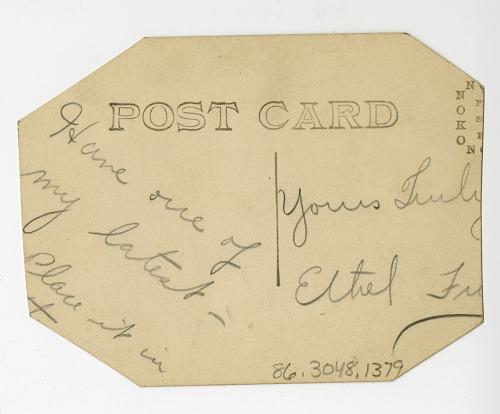 POST CARD
Have one of
my latest -
Place it in
Yours Truly
Ethel
NOKO
86.3048.1379